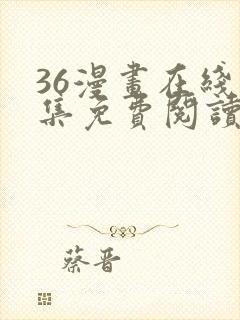 36漫畫在綫
集免費閱讀
蔡晋